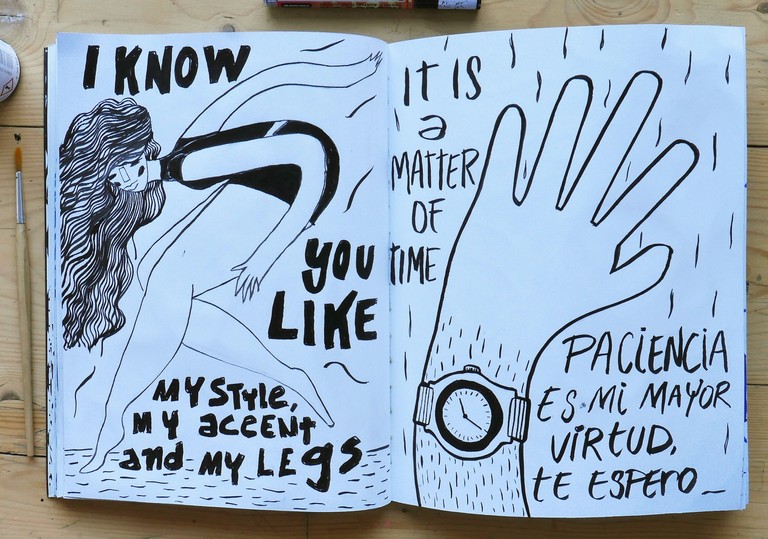 I KNOW
YOU
LIKE
MY STYLE,
MY accent
and MY LEgS
IT IS
a
MATTER
OF
TIME
PACiENCiA
ES Mi MAYOR
ViRTUD.
TE ESPERO_